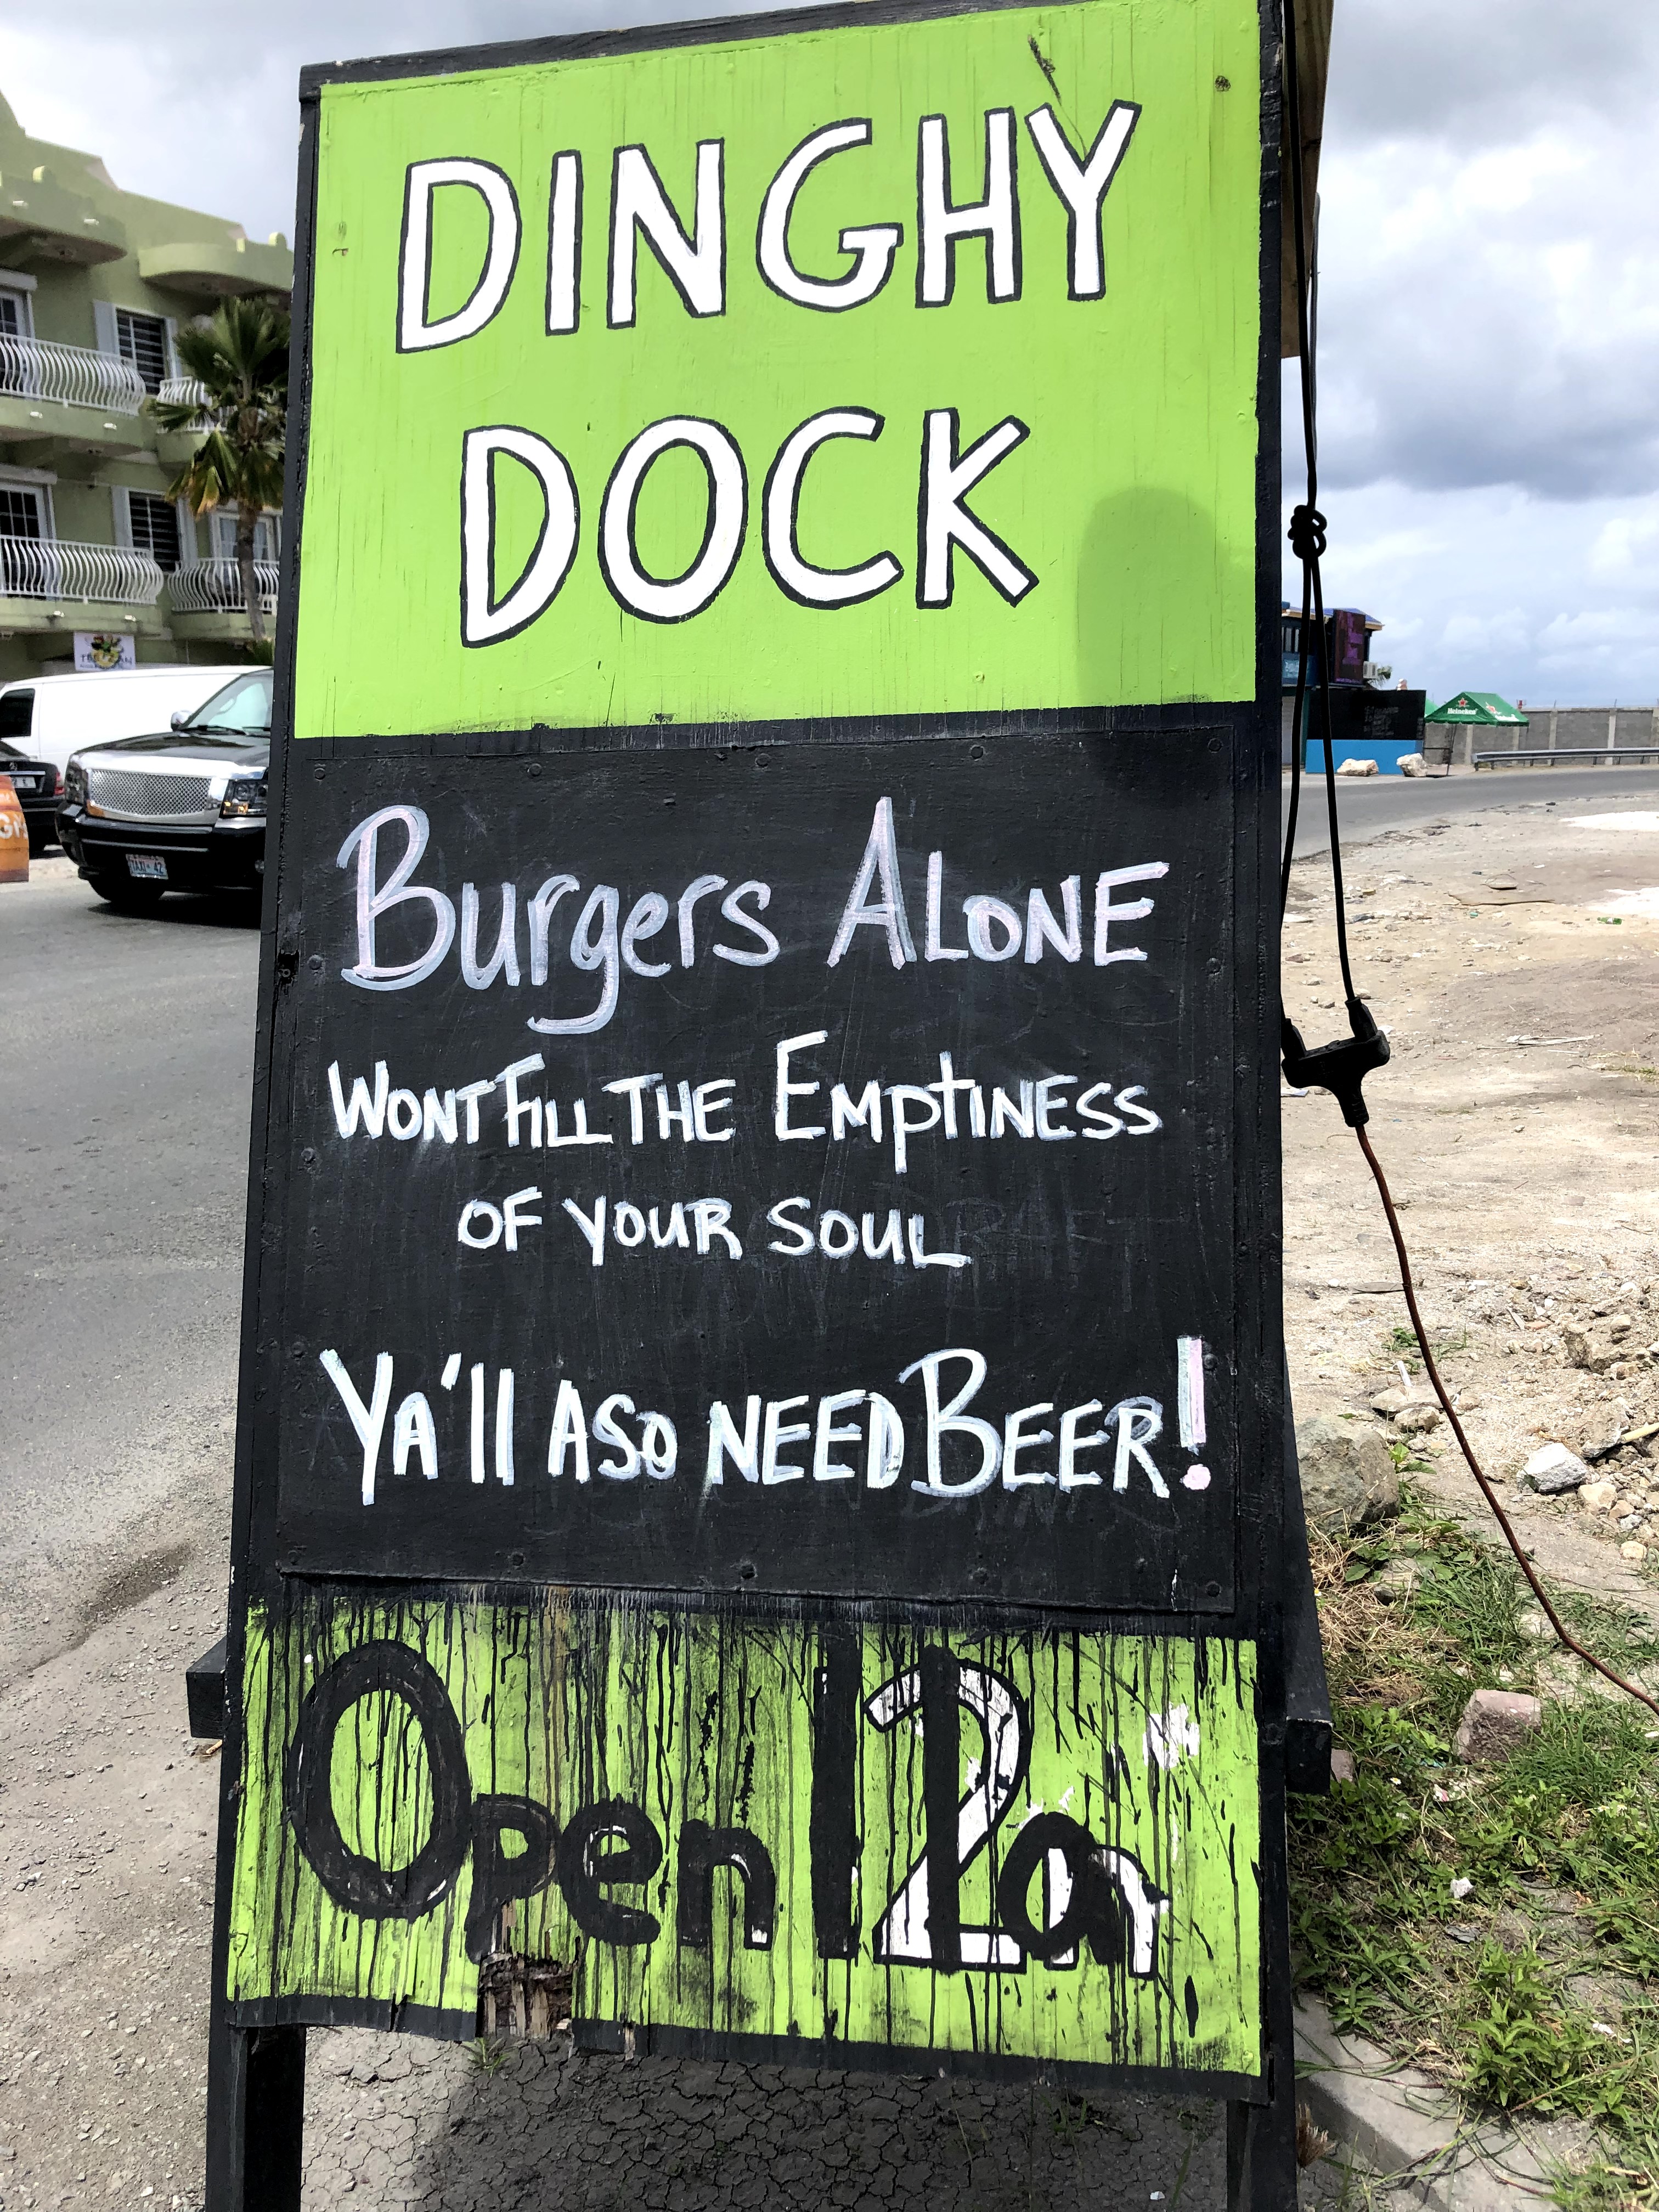 DINGHY
DOCK
Burgers ALONE
WONT FILL THE EMPTINESS
OF YOUR SOUL
YA'll ASO NEED BEER!
Open
Heineken